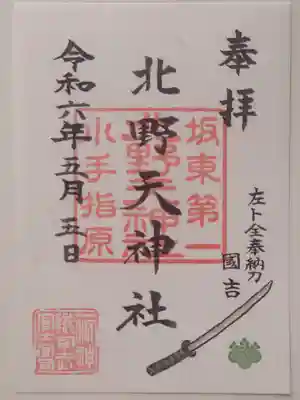 奉拝
坂東第一
北野天神社
小手指原
令和六年五月五日
左卜全奉納刀
國吉